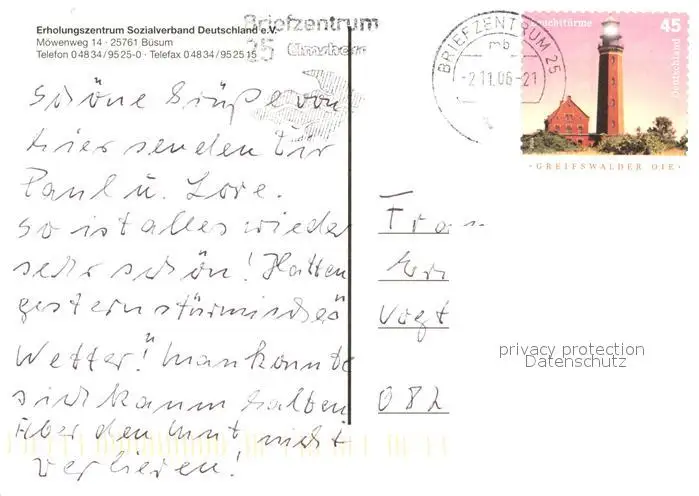 Erholungszentrum Sozialverband Deutschland e.V.
Möwenweg 14 · 25761 Büsum
Telefon 0 48 34 / 95 25-0 · Telefax 0 48 34 / 95 25 15
Briefzentrum
25 Elmshorn
BRIEFZENTRUM 25
mb
-2.11.06-21
Leuchttürme 45
Deutschland
· GREIFSWALDER OIE ·
schöne Grüße von
hier senden Dir
Paul u. Lore.
So ist alles wieder
sehr schön! Hatten
gestern stürmisches
Wetter! Man konnte
sich kaum halten
Aber den Mut nicht
verlieren!
Frau
Vogt
082
privacy protection
Datenschutz